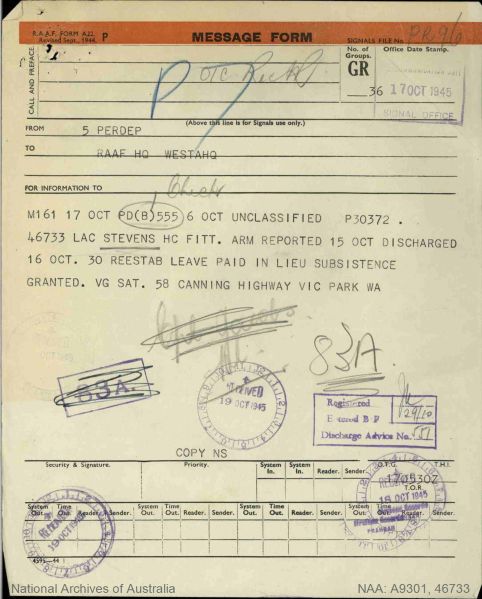 R.A.A.F. FORM A.22.
Revised Sept., 1944. P
MESSAGE FORM
SIGNALS FILE No. PR96
CALL AND PREFACE
No. of Groups.
GR
36
Office Date Stamp.
17 OCT 1945
SIGNAL OFFICE
(Above this line is for Signals use only.)
FROM 5 PERDEP
TO RAAF HQ WESTAHQ
FOR INFORMATION TO
M161 17 OCT PD(B)555 6 OCT UNCLASSIFIED P30372 .
46733 LAC STEVENS HC FITT. ARM REPORTED 15 OCT DISCHARGED
16 OCT. 30 REESTAB LEAVE PAID IN LIEU SUBSISTENCE
GRANTED. VG SAT. 58 CANNING HIGHWAY VIC PARK WA
83A
83A.
RECEIVED
19 OCT 1945
Registered
Entered B F 29/10
Discharge Advice No. 551
COPY NS
Security & Signature. Priority. System In. System In. Reader. Sender. O.T.G. T.H.I.
170530Z
T.O.R.
18 OCT 1945
System Out. Time Out. Reader. Sender. System Out. Time Out. System Out. Time Out. Reader. Sender. System Out. Time Out. Reader. Sender.
19 OCT 1945
4595—44
National Archives of Australia NAA: A9301, 46733